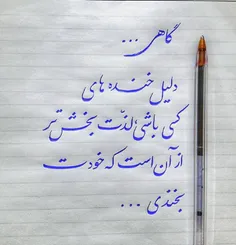 گاهی ...
دلیل خنده های
کسی باشی، لذّت بخش تر
از آن است که خودت
بخندی ...